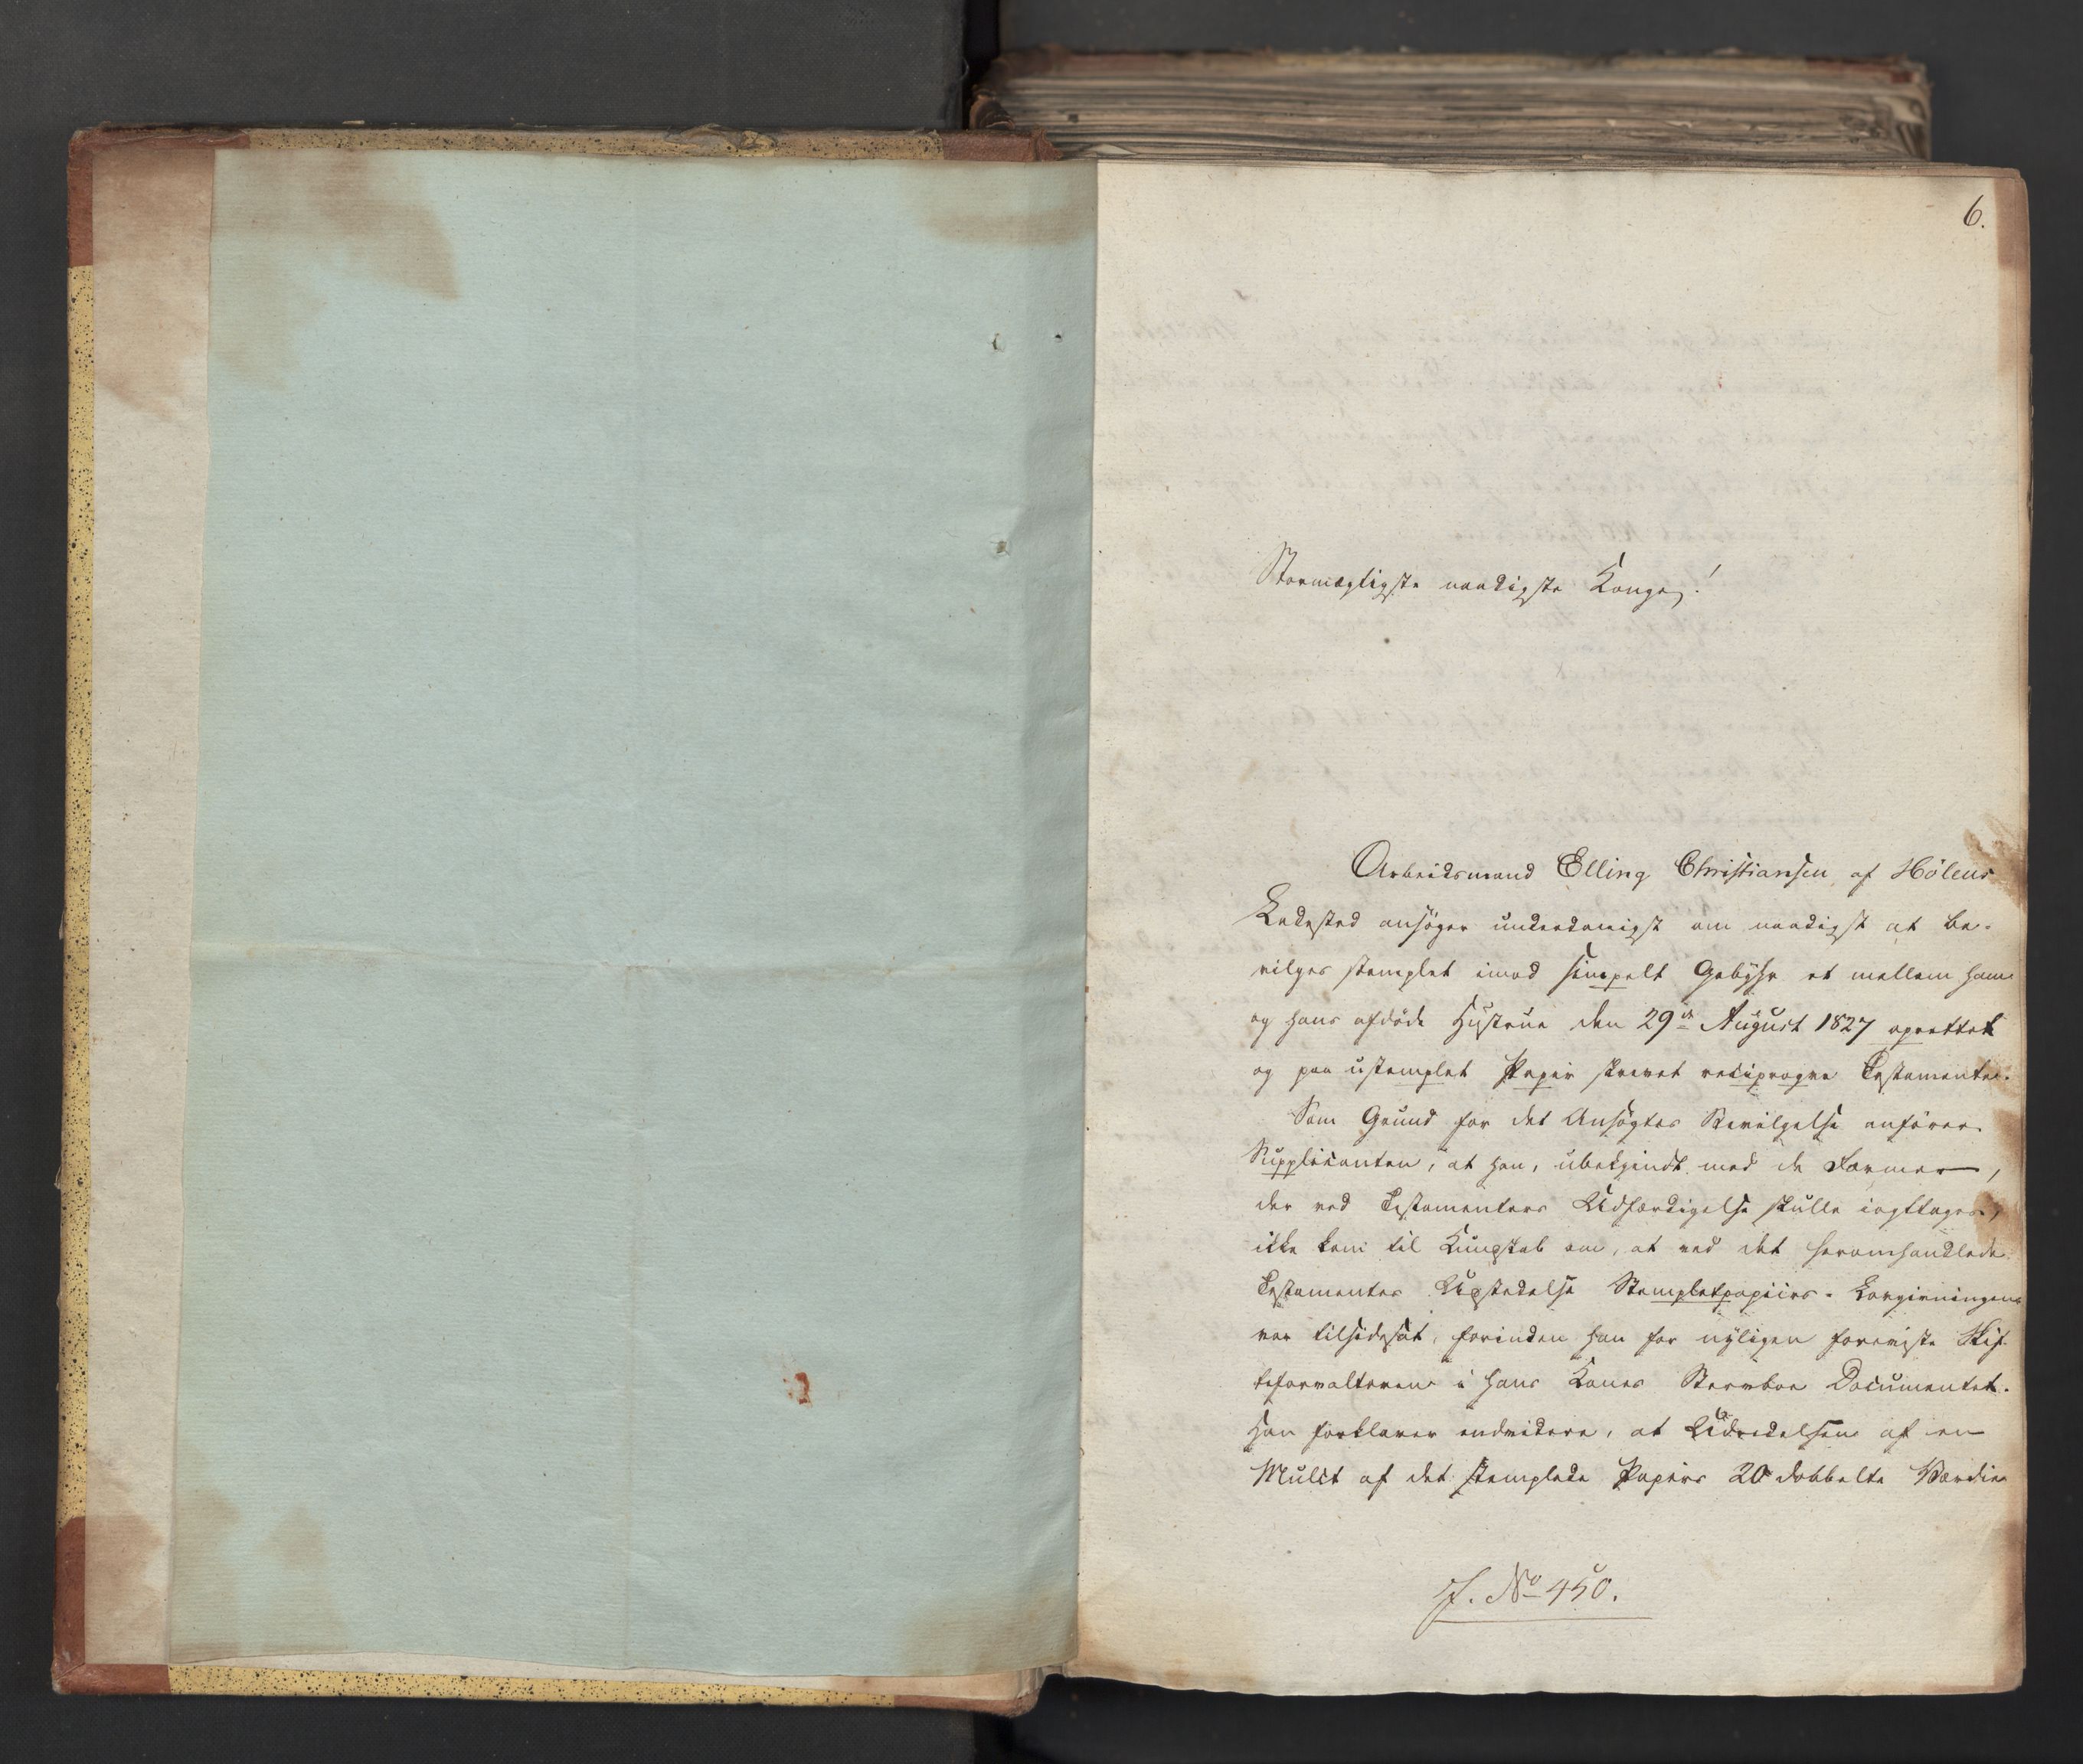 6.
Stormægtigste naadigste Konge!
Arbeidsmand Elling Christiansen af Hölens
Ladested ansöger underdanigst om naadigst at be-
vilges stemplet imod simpelt Gebyhr et mellem ham
og hans afdöde Hustrue den 29de August 1827 oprettet
og paa ustemplet Papir skrevet reciproqve Testamente.
Som Grund for det Ansögtes Bevilgelse anförer
Supplicanten, at han, ubekjendt med de Former,
der ved Testamenters Udfærdigelse skulle iagttages,
ikke kom til Kundskab om, at ved det heromhandlede
Testamentes Udstedelse Stempletpapiirs-Lovgivningen
var tilsidesat, forinden han for nyligen foreviste Skif-
teforvalteren i hans Kones Stervboe Documentet.
Han forklarer endvidere, at Udredelsen af en
Mulct af det stemplede Papirs 20 dobbelte Værdie
J. No 450.